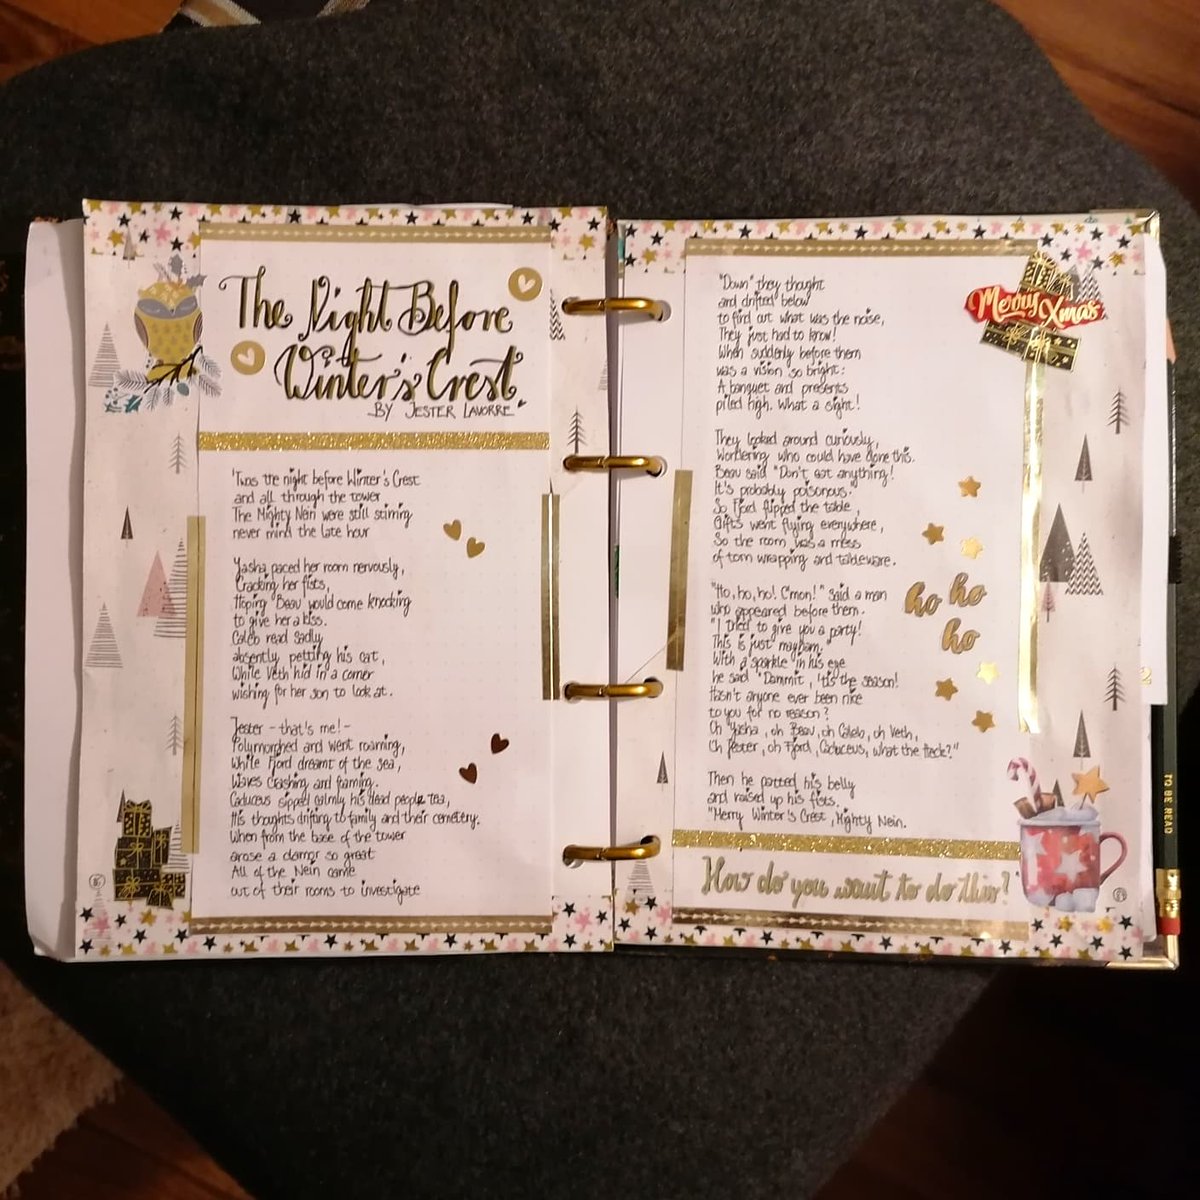 The Night Before
Winter's Crest
BY JESTER LAVORRE
'Twas the night before Winter's Crest
and all through the tower
The Mighty Nein were still stirring
never mind the late hour
Yasha paced her room nervously,
Cracking her fists,
Hoping Beau would come knocking
to give her a kiss.
Caleb read sadly
absently petting his cat,
While Veth hid in a corner
wishing for her son to look at.
Jester - that's me! -
Polymorphed and went roaming,
While Fjord dreamt of the sea,
Waves Crashing and foaming.
Caduceus sipped calmly his dead people tea,
His thoughts drifting to family and their cemetery.
When from the base of the tower
arose a clamor so great
All of the Nein came
out of their rooms to investigate
"Down" they thought
and drifted below
to find out what was the noise,
They just had to know!
When suddenly before them
was a vision so bright:
A banquet and presents
piled high. What a sight!
They looked around curiously,
Wondering who could have done this.
Beau said "Don't eat anything!
It's probably poisonous."
So Fjord flipped the table,
Gifts went flying everywhere,
So the room was a mess
of torn wrapping and tableware.
"Ho, ho, ho! C'mon!" said a man
who appeared before them.
"I Tried to give you a party!
This is just mayham."
With a sparkle in his eye
he said "Dammit, 'tis the season!
Hasn't anyone ever been nice
to you for no reason?
Oh Yasha, oh Beau, oh Caleb, oh Veth,
Oh Jester, oh Fjord, Caduceus, what the heck?"
Then he patted his belly
and raised up his fists.
"Merry Winter's Crest, Mighty Nein.
How do you want to do this?"
Merry Xmas
ho ho
ho
2
TO BE READ